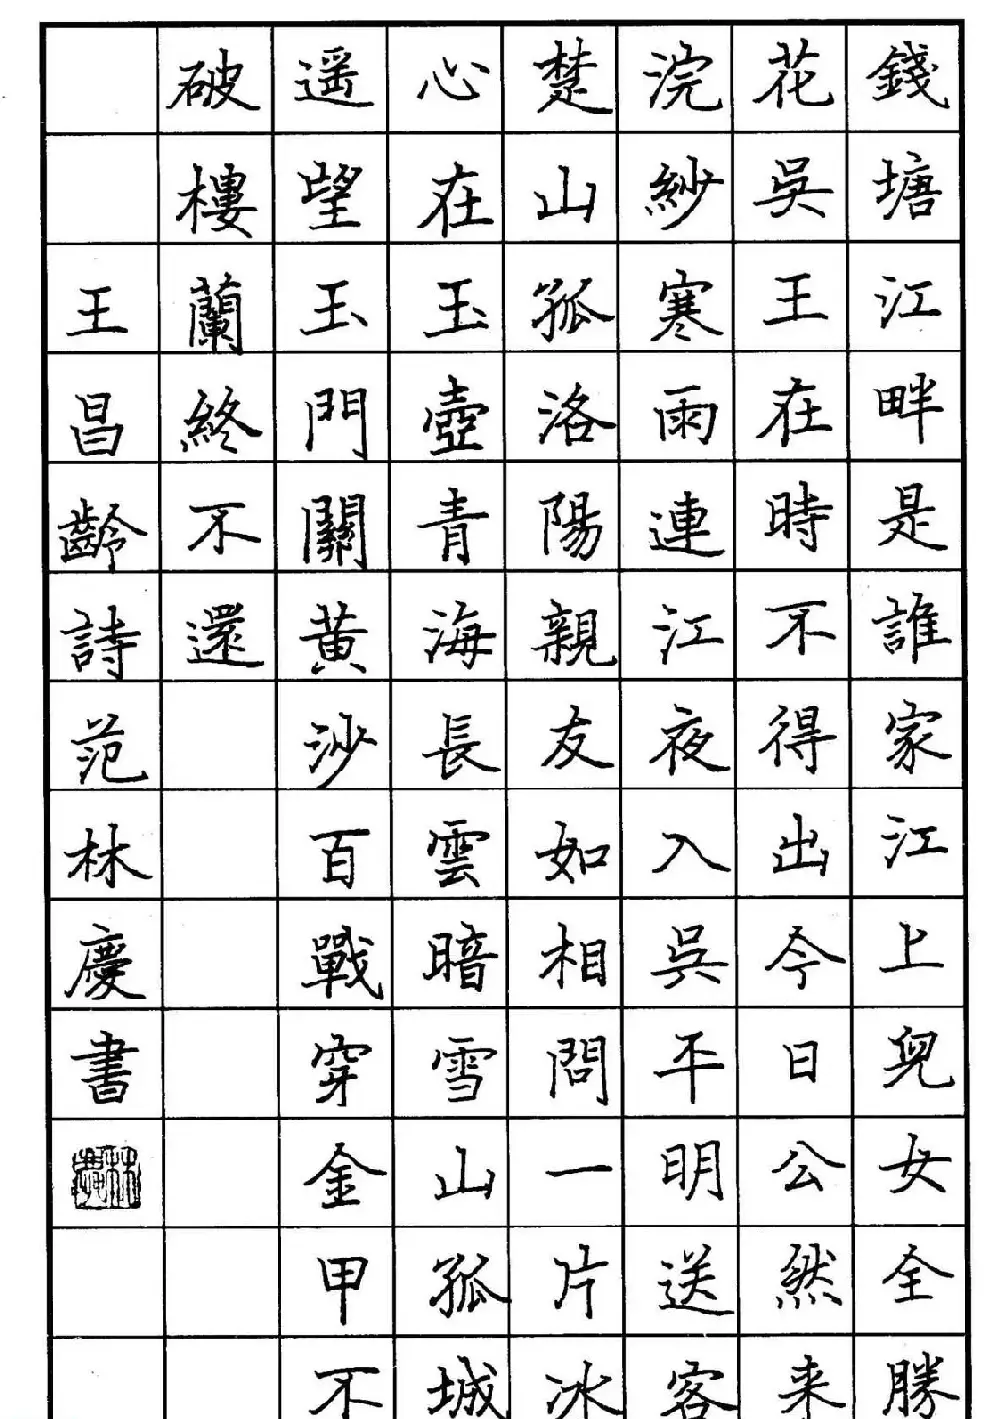 錢塘江畔是誰家江上兒女全勝
花吳王在時不得出今日公然来
浣紗寒雨連江夜入吳平明送客
楚山孤洛陽親友如相問一片冰
心在玉壺青海長雲暗雪山孤城
遥望玉門關黄沙百戰穿金甲不
破樓蘭終不還
王昌齡詩范林慶書